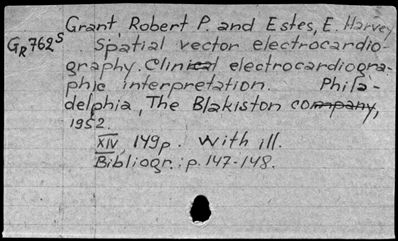 Grant, Robert P. and Estes, E. Harvey
GR762S Spatial vector electrocardio-
graphy. Clinical electrocardiogra-
phic interpretation. Phila-
delphia, The Blakiston company,
1952.
XIV, 149p. With ill.
Bibliogr.: p. 147-148.